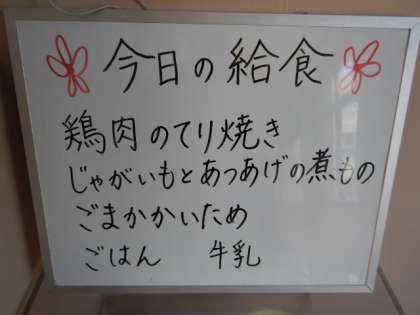 今日の給食
鶏肉のてり焼き
じゃがいもとあつあげの煮もの
ごまかかいため
ごはん 牛乳